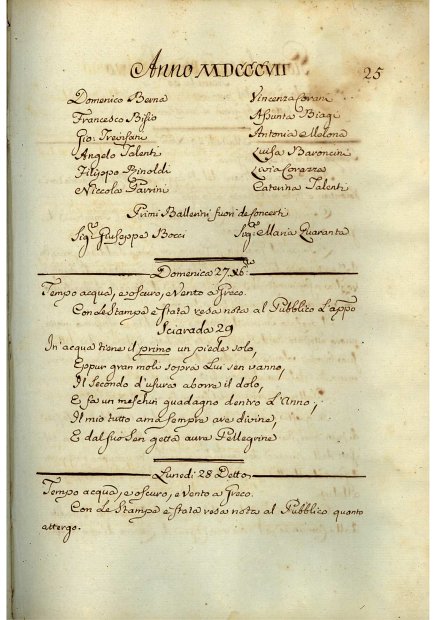 Anno MDCCCVII
25
Domenico Berna
Francesco Bisio
Gio: Trevisani
Angelo Talenti
Filippo Rinoldi
Niccola Parrini
Vincenza Corani
Assunta Biagi
Antonia Melona
Luisa Baroncini
Livia Corazza
Caterina Talenti
Primi Ballerini fuori de Concerti
Sig:r Giuseppe Bocci
Sig:ra Maria Quaranta
Domenica 27 Xbre
Tempo acqua, e oscuro, e Vento a Greco.
Con le Stampe è stata resa nota al Pubblico L'appo
Sciarada 29
In' acqua tiene il primo un piede solo,
Eppur gran mole sopra Lui sen vanno,
Il Secondo d'usura aborre il dolo,
E fa un meschin guadagno dentro L'Anno;
Il mio tutto ama sempre are divine,
E dal suo Sen getta aure Pellegrine
Lunedi 28 Detto
Tempo acqua, e oscuro, e Vento a Greco.
Con le Stampe è stata resa notta al Pubblico quanto
attergo.